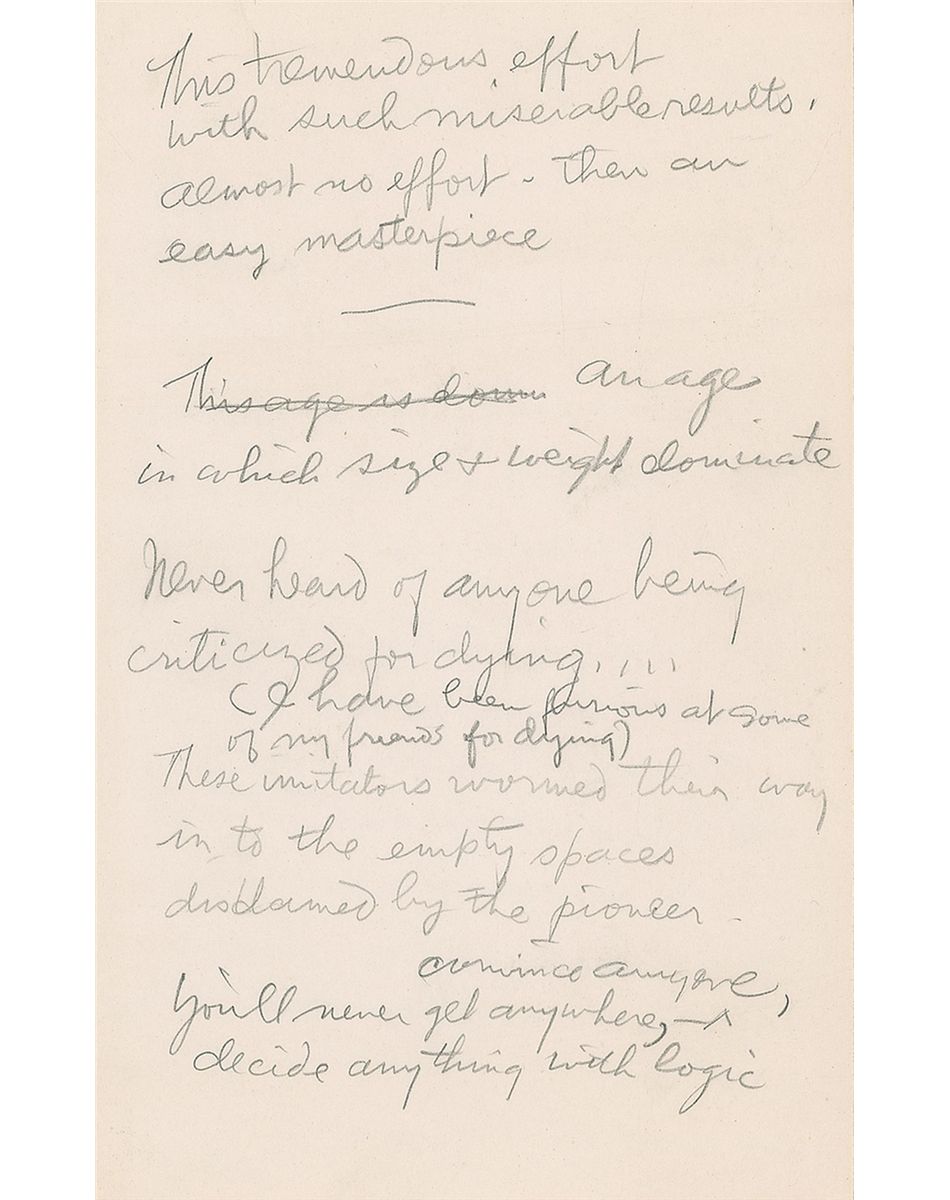 This tremendous effort
with such miserable results.
almost no effort - then an
easy masterpiece
This age is dom an age
in which size + weight dominate
Never heard of anyone being
criticized for dying.....
(I have been furious at some
of my friends for dying)
These imitators wormed their way
in to the empty spaces
disdained by the pioneer -
convince anyone,
You'll never get anywhere,
decide anything with logic